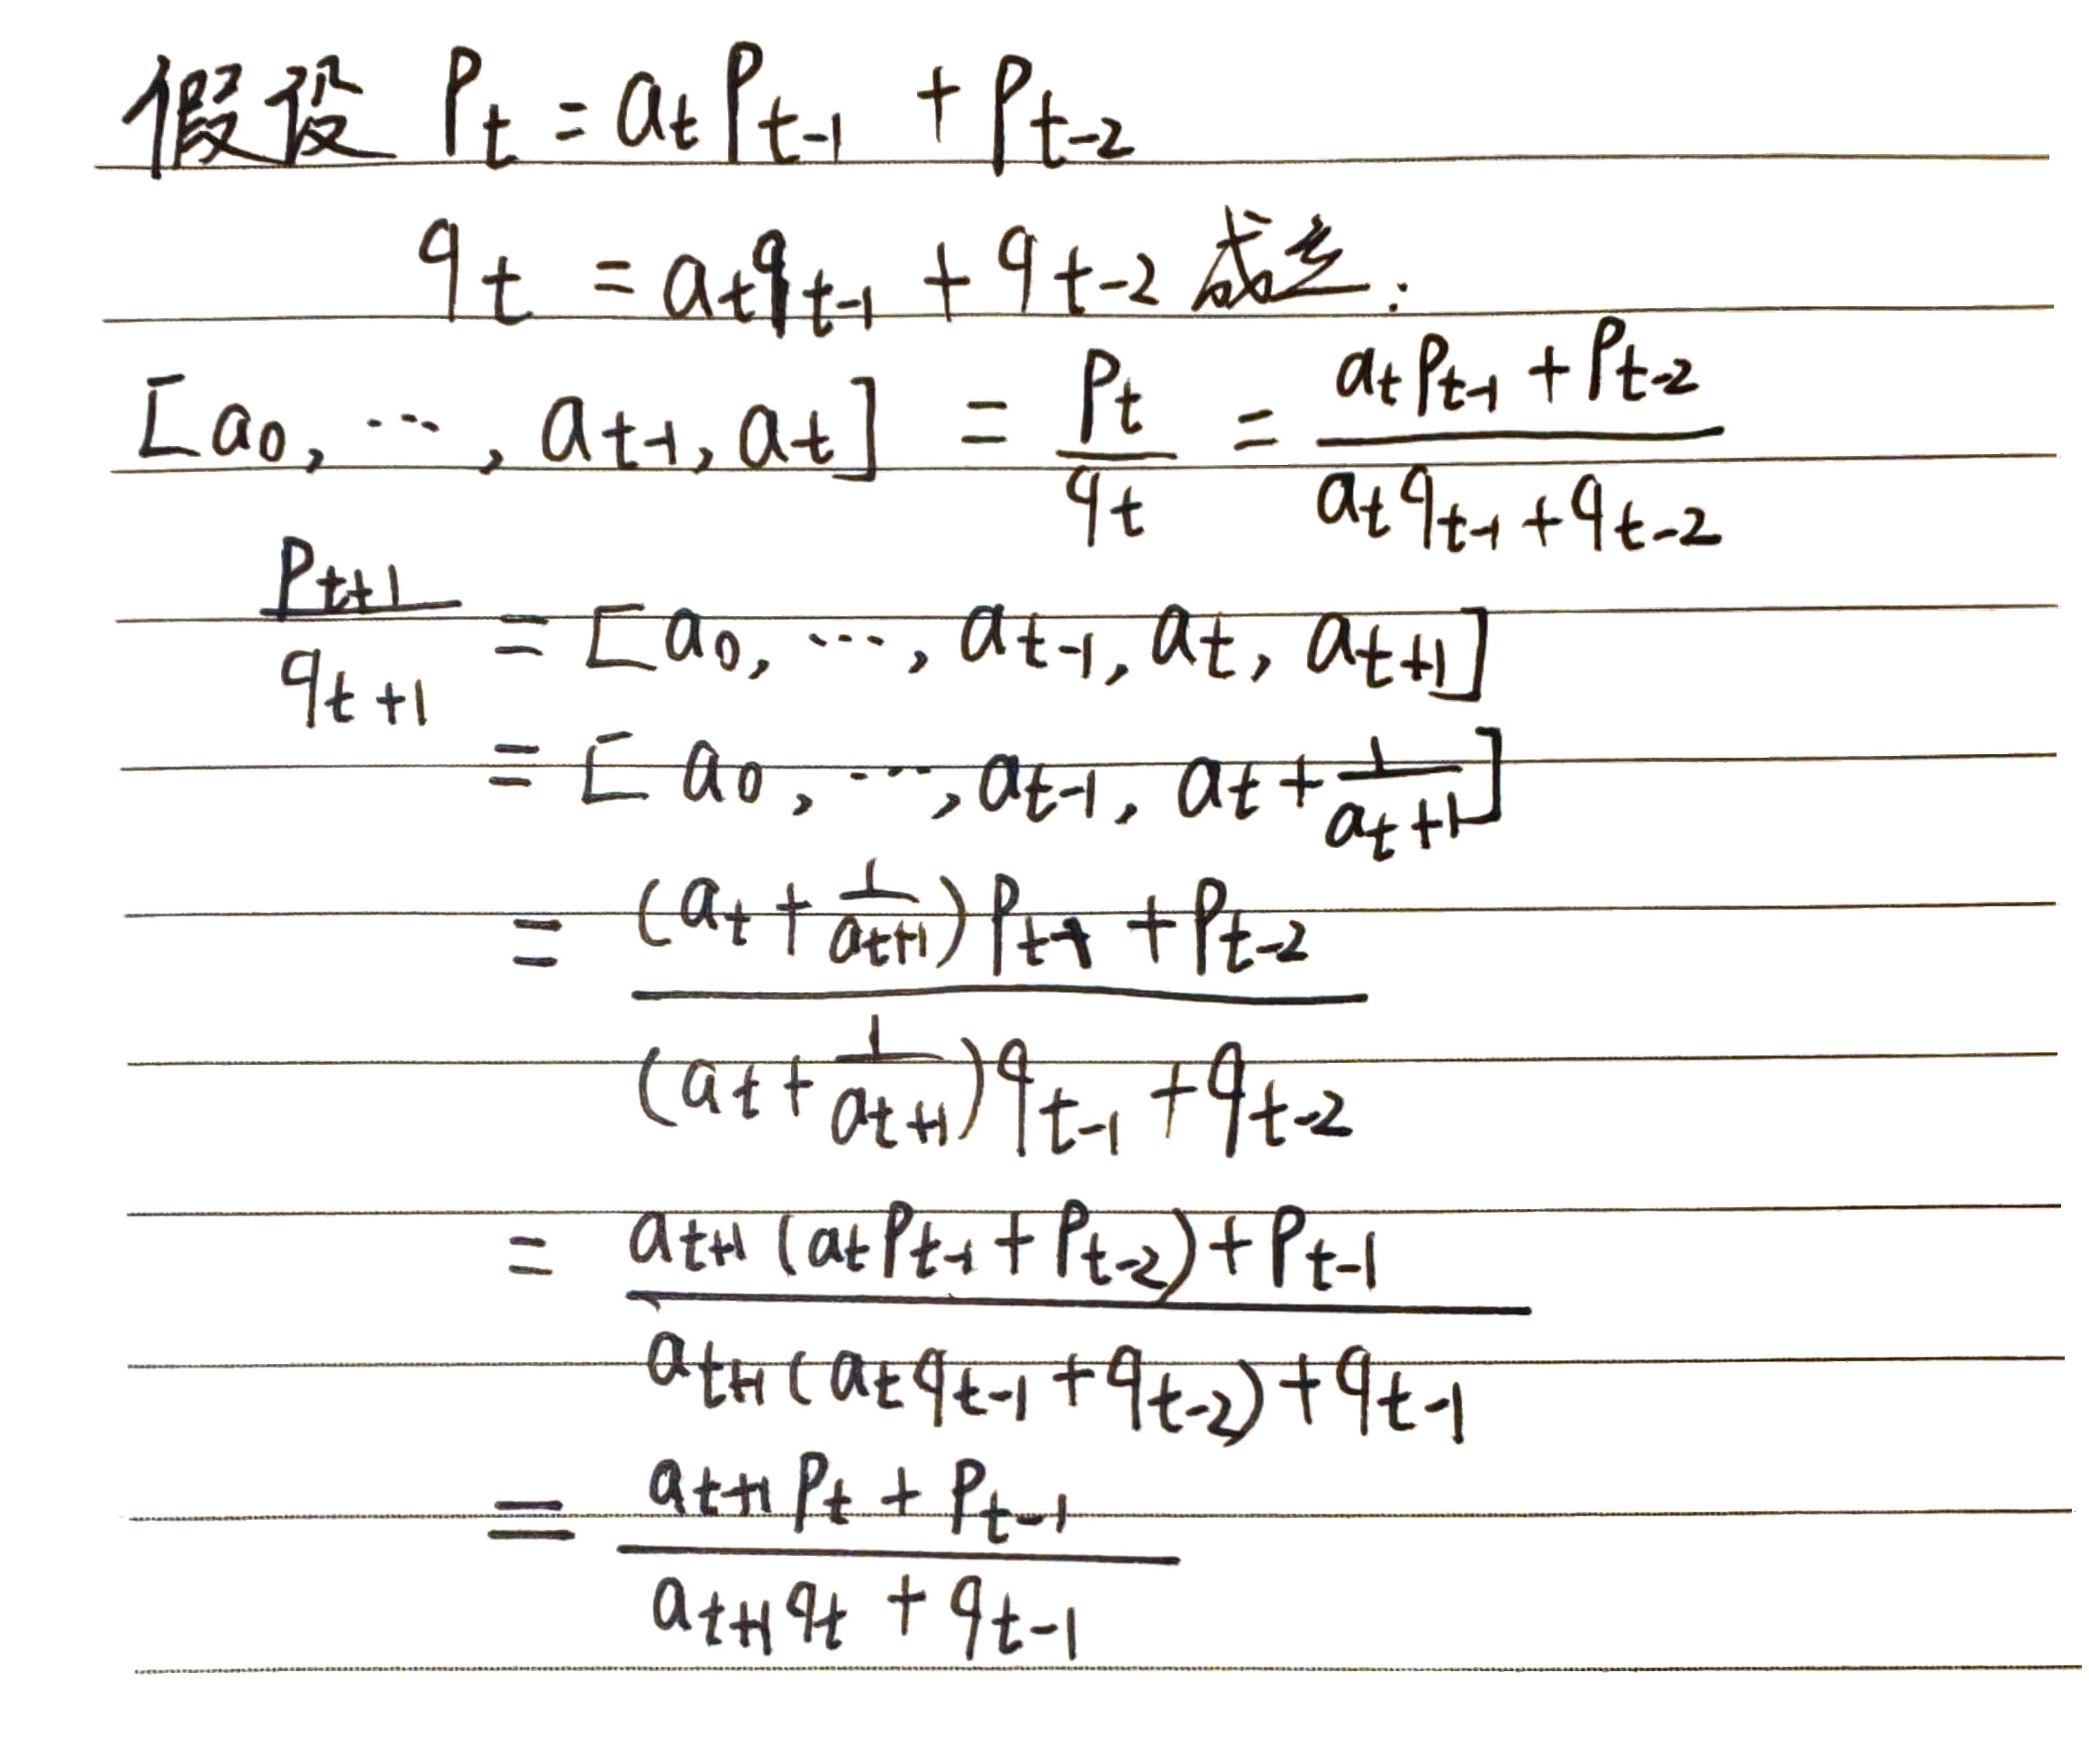 假设 P_t = a_t P_{t-1} + P_{t-2}
q_t = a_t q_{t-1} + q_{t-2} 成立.
[a_0, …, a_{t-1}, a_t] = \frac{P_t}{q_t} = \frac{a_t P_{t-1} + P_{t-2}}{a_t q_{t-1} + q_{t-2}}
\frac{P_{t+1}}{q_{t+1}} = [a_0, …, a_{t-1}, a_t, a_{t+1}]
= [a_0, …, a_{t-1}, a_t + \frac{1}{a_{t+1}}]
= \frac{(a_t + \frac{1}{a_{t+1}}) P_{t-1} + P_{t-2}}{(a_t + \frac{1}{a_{t+1}}) q_{t-1} + q_{t-2}}
= \frac{a_{t+1} (a_t P_{t-1} + P_{t-2}) + P_{t-1}}{a_{t+1} (a_t q_{t-1} + q_{t-2}) + q_{t-1}}
= \frac{a_{t+1} P_t + P_{t-1}}{a_{t+1} q_t + q_{t-1}}